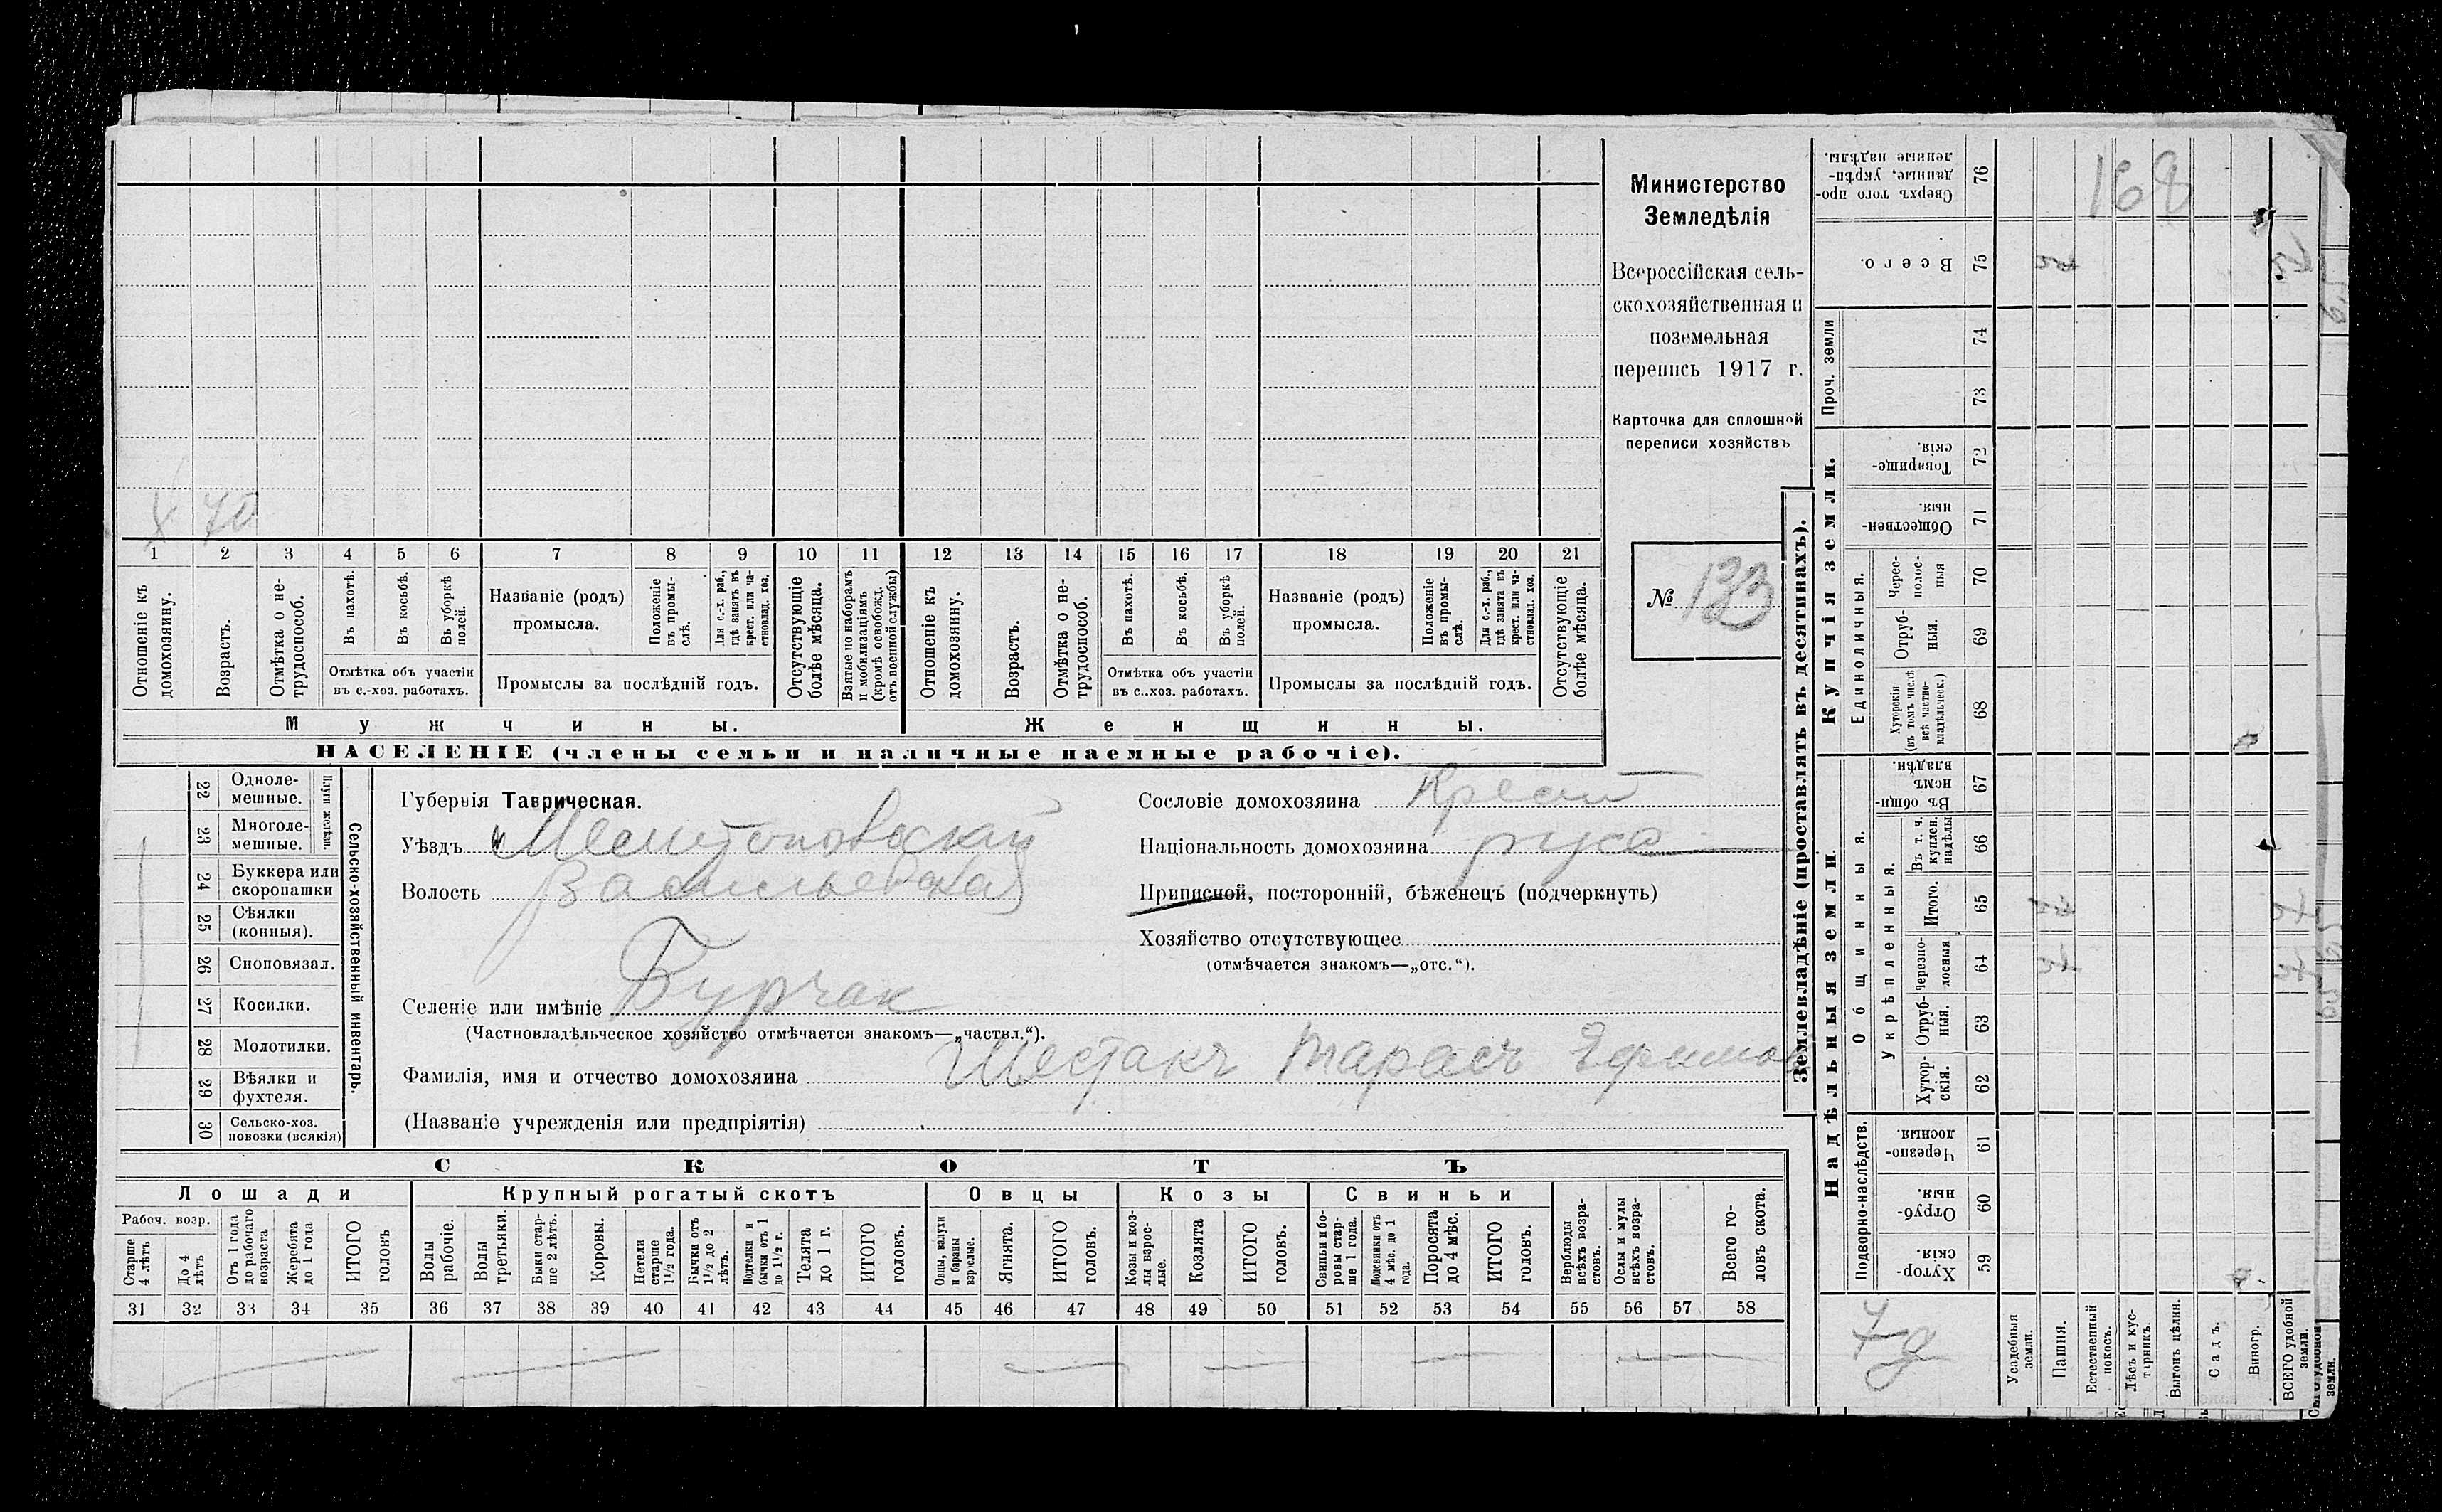 Министерство
Земледѣлія
Всероссійская сель-
скохозяйственная и
поземельная
перепись 1917 г.
Карточка для сплошной
переписи хозяйствъ
№ 133
х 70
1 2 3 4 5 6 7 8 9 10 11 12 13 14 15 16 17 18 19 20 21
Отношеніе къ домохозяину.
Возрастъ.
Отмѣтка о не-трудоспособ.
Въ пахотѣ.
Въ косьбѣ.
Въ уборкѣ полей.
Отмѣтка объ участіи
въ с.-хоз. работахъ.
Названіе (родъ)
промысла.
Положеніе въ промы-слѣ.
Для с.-х. раб., гдѣ занятъ въ крест. или ча-стновлад. хоз.
Промыслы за послѣдній годъ.
Отсутствующіе болѣе мѣсяца.
Взятые по наборамъ и мобилизаціямъ (кромѣ освобожд. отъ военной службы)
Отношеніе къ домохозяину.
Возрастъ.
Отмѣтка о не-трудоспособ.
Въ пахотѣ.
Въ косьбѣ.
Въ уборкѣ полей.
Отмѣтка объ участіи
въ с..хоз. работахъ.
Названіе (родъ)
промысла.
Положеніе въ промы-слѣ.
Для с.-х. раб., гдѣ занята въ крест. или ча-стновлад. хоз.
Промыслы за послѣдній годъ.
Отсутствующіе болѣе мѣсяца.
Мужчины.
Женщины.
НАСЕЛЕНІЕ (члены семьи и наличные наемные рабочіе).
Сельско-хозяйственный инвентарь.
Плуги желѣзн.
22 Одноле-мешные.
23 Многоле-мешные.
24 Буккера или скоропашки
25 Сѣялки (конныя).
26 Сноповязал.
27 Косилки.
28 Молотилки.
29 Вѣялки и фухтеля.
30 Сельско-хоз. повозки (всякія)
Губернія Таврическая.
Уѣздъ Мелитопольскій
Волость Васильевская
Селеніе или имѣніе Бурчак
(Частновладѣльческое хозяйство отмѣчается знакомъ—„частвл.“).
Фамилія, имя и отчество домохозяина Шестакъ Тарасъ Ефимов
(Названіе учрежденія или предпріятія)
Сословіе домохозяина Крест
Національность домохозяина русс
Приписной, посторонній, бѣженецъ (подчеркнуть)
Хозяйство отсутствующее
(отмѣчается знакомъ—„отс.“).
СКОТЪ
Лошади
Крупный рогатый скотъ
Овцы
Козы
Свиньи
Рабоч. возр.
Старше 4 лѣтъ
До 4 лѣтъ
Отъ 1 года до рабочаго возраста
Жеребята до 1 года
ИТОГО головъ
Волы рабочіе.
Волы третьяки.
Быки стар-ше 2 лѣтъ.
Коровы.
Нетели старше 1½ года.
Бычки отъ 1½ до 2 лѣтъ.
Подтелки и бычки отъ 1 до 1½ г.
Телята до 1 г.
ИТОГО головъ.
Овцы, валухи и бараны взрослые.
Ягнята.
ИТОГО головъ.
Козы и коз-лы взрос-лые.
Козлята
ИТОГО головъ.
Свиньи и бо-ровы стар-ше 1 года.
Подсвинки отъ 4 мѣс. до 1 года.
Поросята до 4 мѣс.
ИТОГО головъ.
Верблюды всѣхъ возра-стовъ.
Ослы и мулы всѣхъ возра-стовъ.
Всего го-ловъ скота.
31 32 33 34 35 36 37 38 39 40 41 42 43 44 45 46 47 48 49 50 51 52 53 54 55 56 57 58
Землевладѣніе (проставлять въ десятинахъ).
Купчія земли.
Надѣльныя земли.
Проч. земли
Единоличныя.
Общинныя.
Укрѣпленныя.
Подворно-наслѣдств.
76 Сверхъ того про-данные, укрѣп-ленные надѣлы.
168
75 Всего.
74
73
72 Товарище-скія.
71 Обществен-ныя.
70 Черес-полос-ныя
69 Отруб-ныя.
68 Хуторскія (въ томъ числѣ всѣ частно-владѣльческ.)
67 Въ общи-номъ владѣн.
66 Въ т. ч. куплен. надѣлы
65 Итого.
64 черезпо-лосныя
63 Отруб-ныя.
62 Хутор-скія.
61 Черезпо-лосныя.
60 Отруб-ныя.
59 Хутор-скія.
Усадебныя земли.
Пашня.
Естественный покосъ.
Лѣсъ и кус-тарникъ.
Выгонъ цѣлин.
Садъ.
Виногр.
ВСЕГО удобной земли.